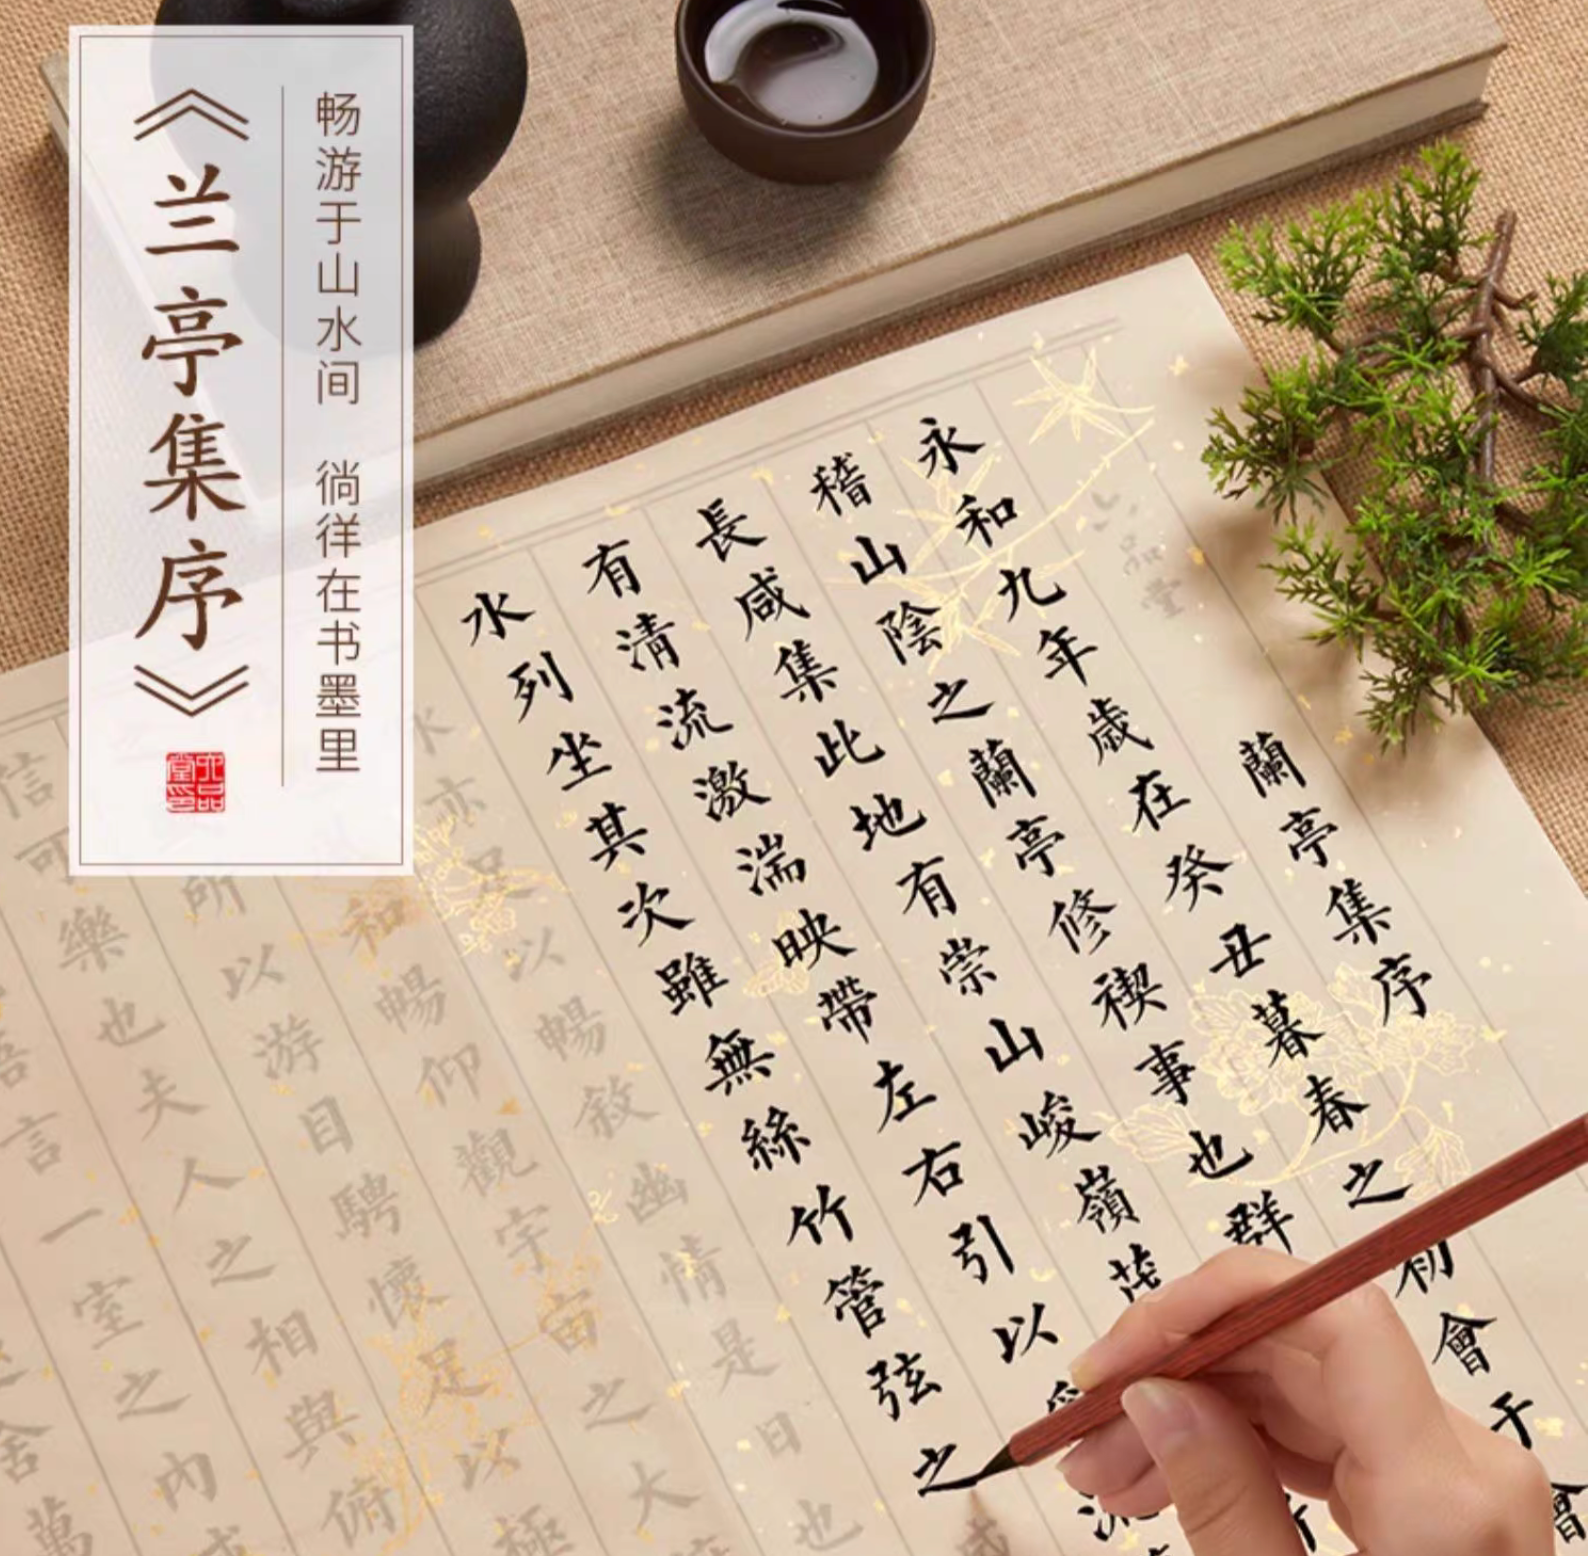 《兰亭集序》
畅游于山水间 徜徉在书墨里
六品堂印
六品堂
蘭亭集序
永和九年歲在癸丑暮春之初會于會
稽山陰之蘭亭修禊事也群
長咸集此地有崇山峻嶺茂
有清流激湍映帶左右引以
水列坐其次雖無絲竹管弦之
亦足以暢敘幽情是日也
和暢仰觀宇宙之大
所以游目騁懷足以極
信可樂也夫人之相與俯
悟言一室之內
舍萬